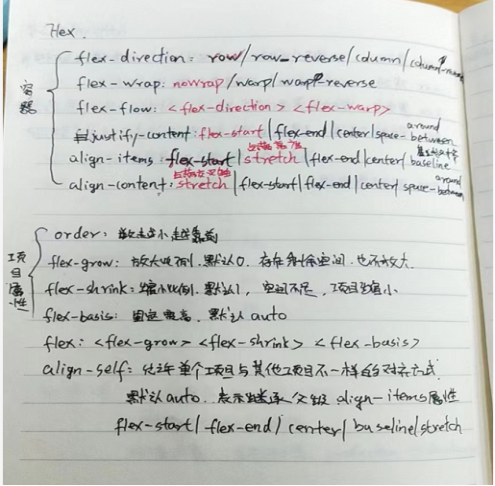 flex.
容器
flex-direction: row/row-reverse/column/column-reverse
flex-wrap: nowrap/warp/warp-reverse
flex-flow: <flex-direction> <flex-warp>
justify-content: flex-start|flex-end|center|space-between around
align-items: flex-start|stretch|flex-end|center|baseline
align-content: stretch|flex-start|flex-end|center|space-between around
项目属性
order: 数越小越靠前
flex-grow: 放大比例. 默认0. 存在剩余空间. 也不放大.
flex-shrink: 缩小比例. 默认1, 空间不足, 项目缩小.
flex-basis: 默认auto
flex: <flex-grow> <flex-shrink> <flex-basis>
align-self: 允许单个项目与其他项目不一样的对齐方式.
默认auto. 表示继承父级 align-items属性
flex-start/ flex-end/ center/ baseline/stretch